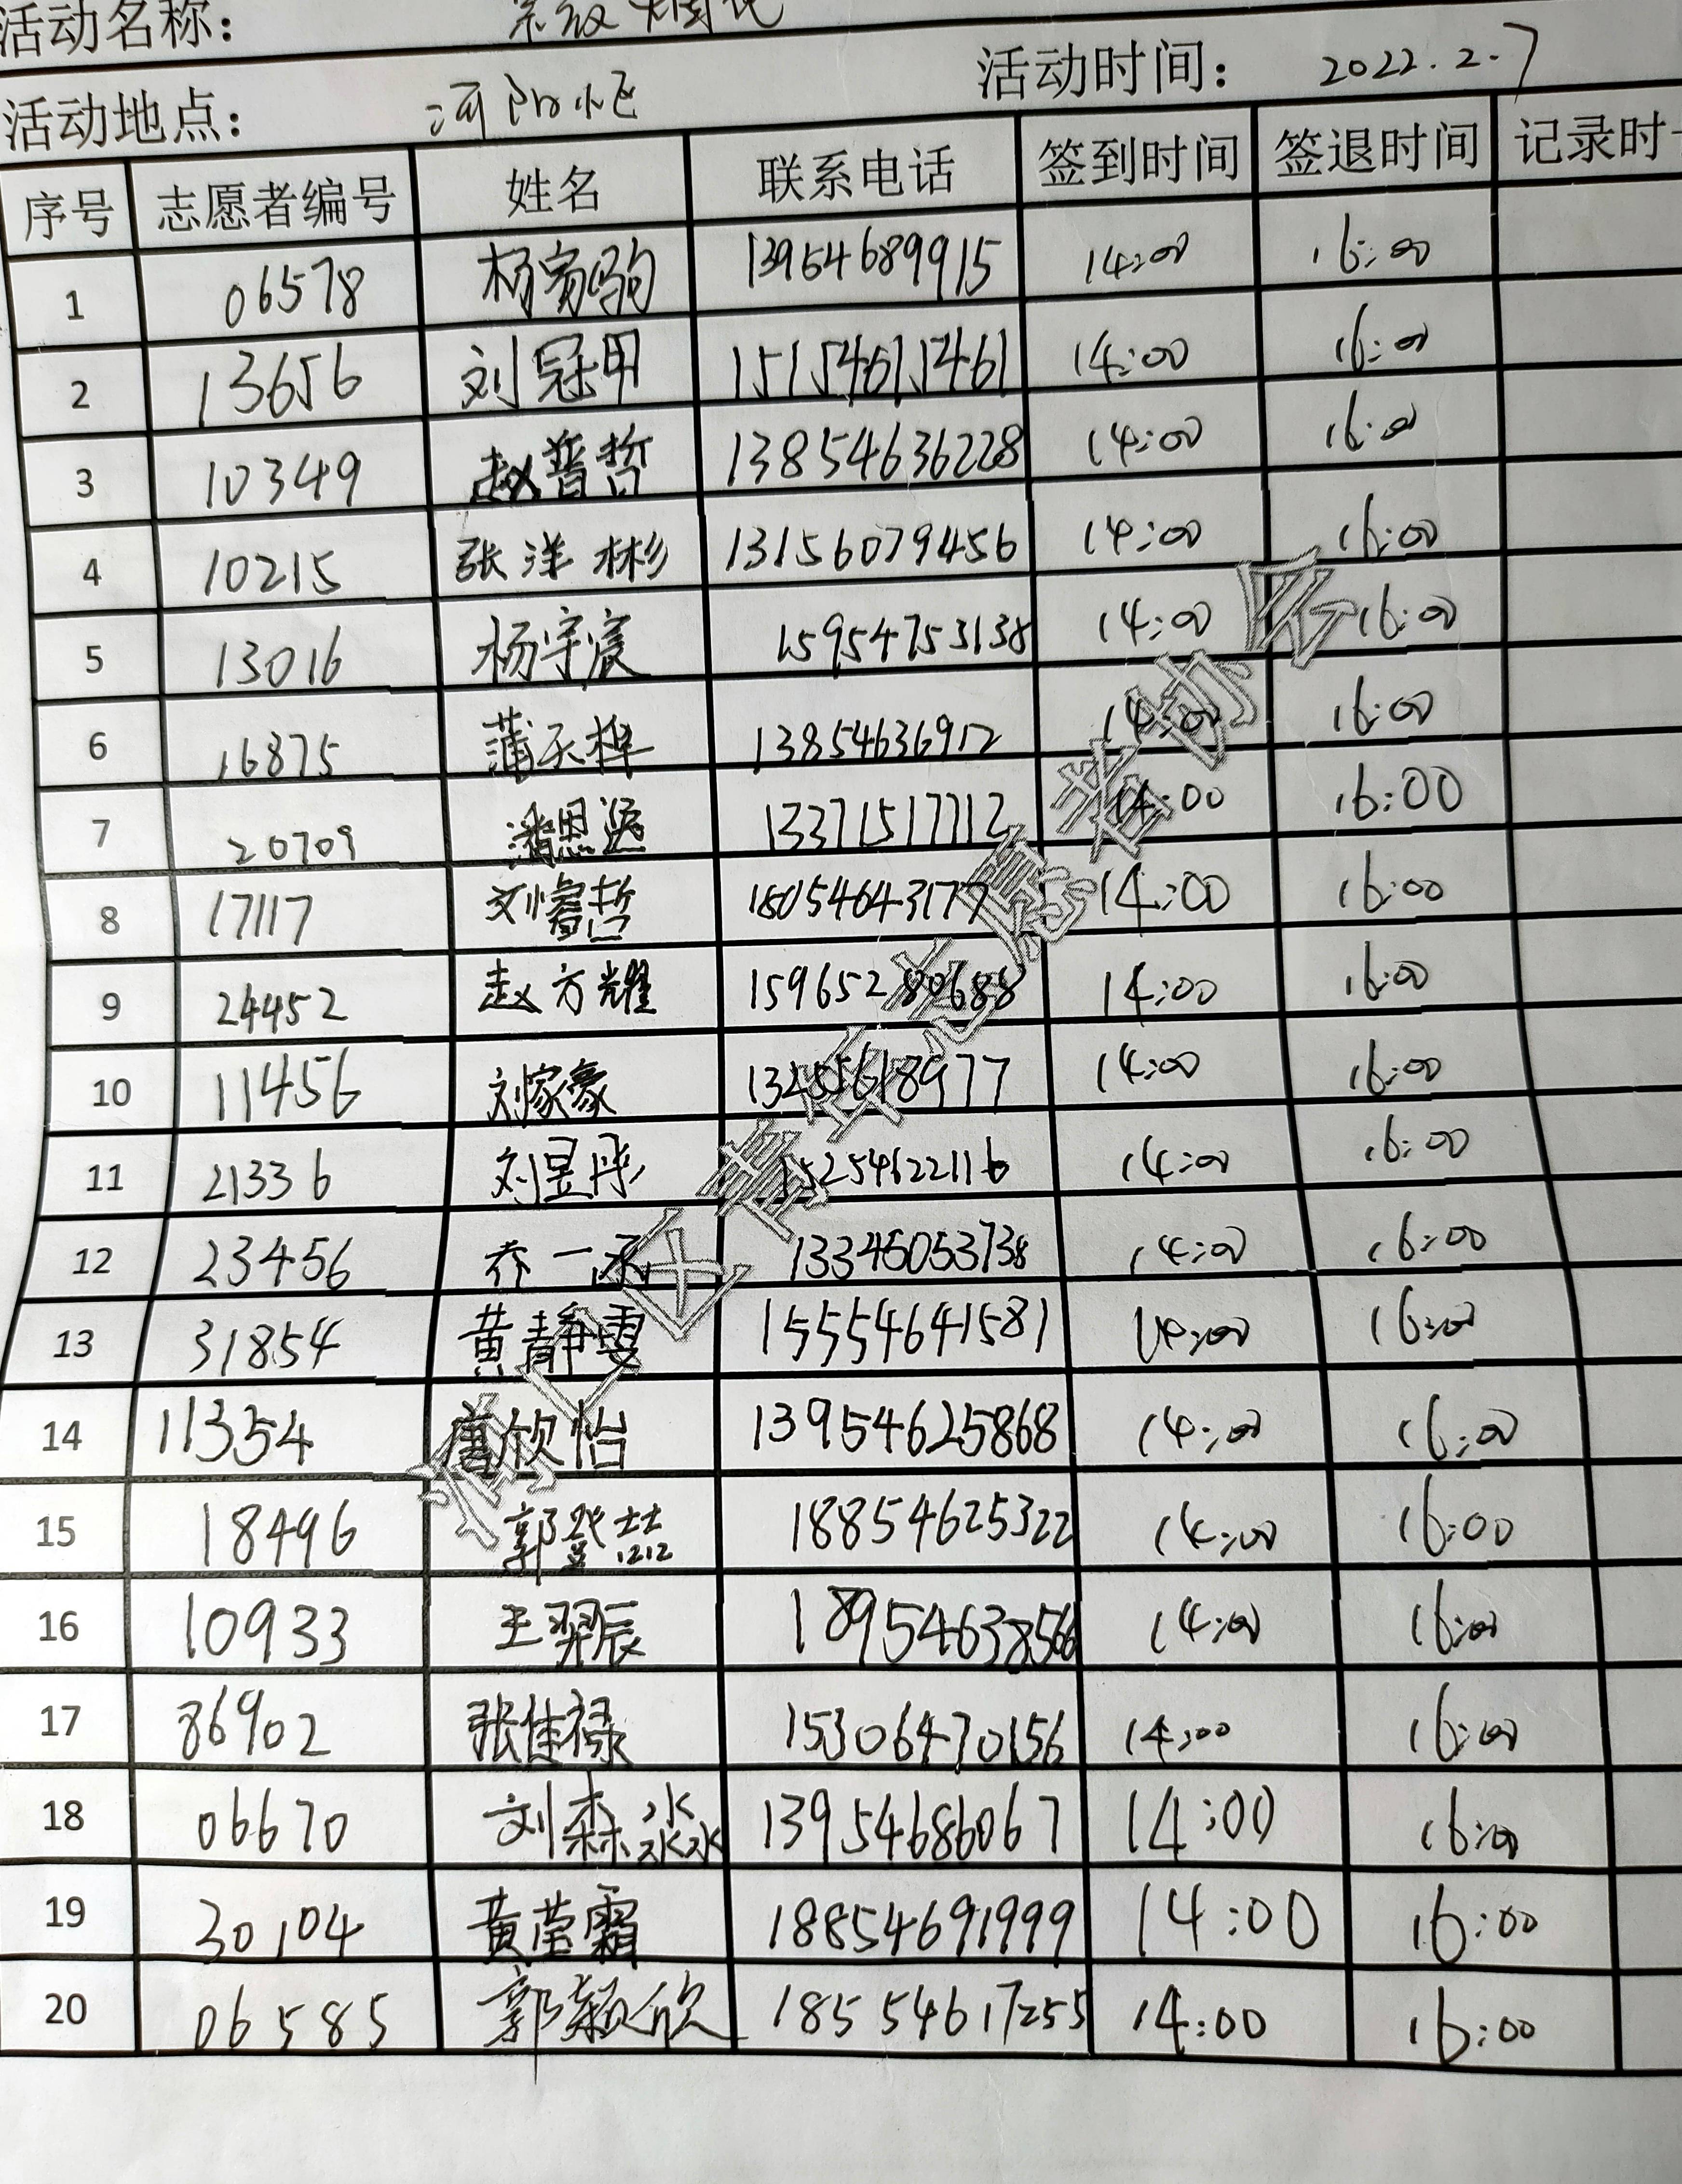 活动名称：
活动地点： 河阳小区 活动时间： 2022.2.7
序号 志愿者编号 姓名 联系电话 签到时间 签退时间 记录时
1 06578 杨家驹 13954689915 14:00 16:00
2 13656 刘冠甲 15154615461 14:00 16:00
3 10349 赵普哲 13854636228 14:00 16:00
4 10215 张洋彬 13156079456 14:00 16:00
5 13016 杨宇宸 15954753138 14:00 16:00
6 16875 蒲天桦 13854636912 14:00 16:00
7 20709 潘思源 13371517712 14:00 16:00
8 17117 刘睿哲 18054643177 14:00 16:00
9 24452 赵方耀 15965280688 14:00 16:00
10 11456 刘家豪 13455618977 14:00 16:00
11 21336 刘昱彤 15254622116 14:00 16:00
12 23456 乔一涵 13345053738 14:00 16:00
13 31854 黄静雯 15554641581 14:00 16:00
14 11354 唐欣怡 13954625868 14:00 16:00
15 18496 郭懿喆 18854625322 14:00 16:00
16 10933 王羿辰 18954638566 14:00 16:00
17 86902 张佳禄 15306470156 14:00 16:00
18 06670 刘森淼 13954686067 14:00 16:00
19 30104 黄莹霜 18854691999 14:00 16:00
20 06585 郭颖欣 18554617255 14:00 16:00